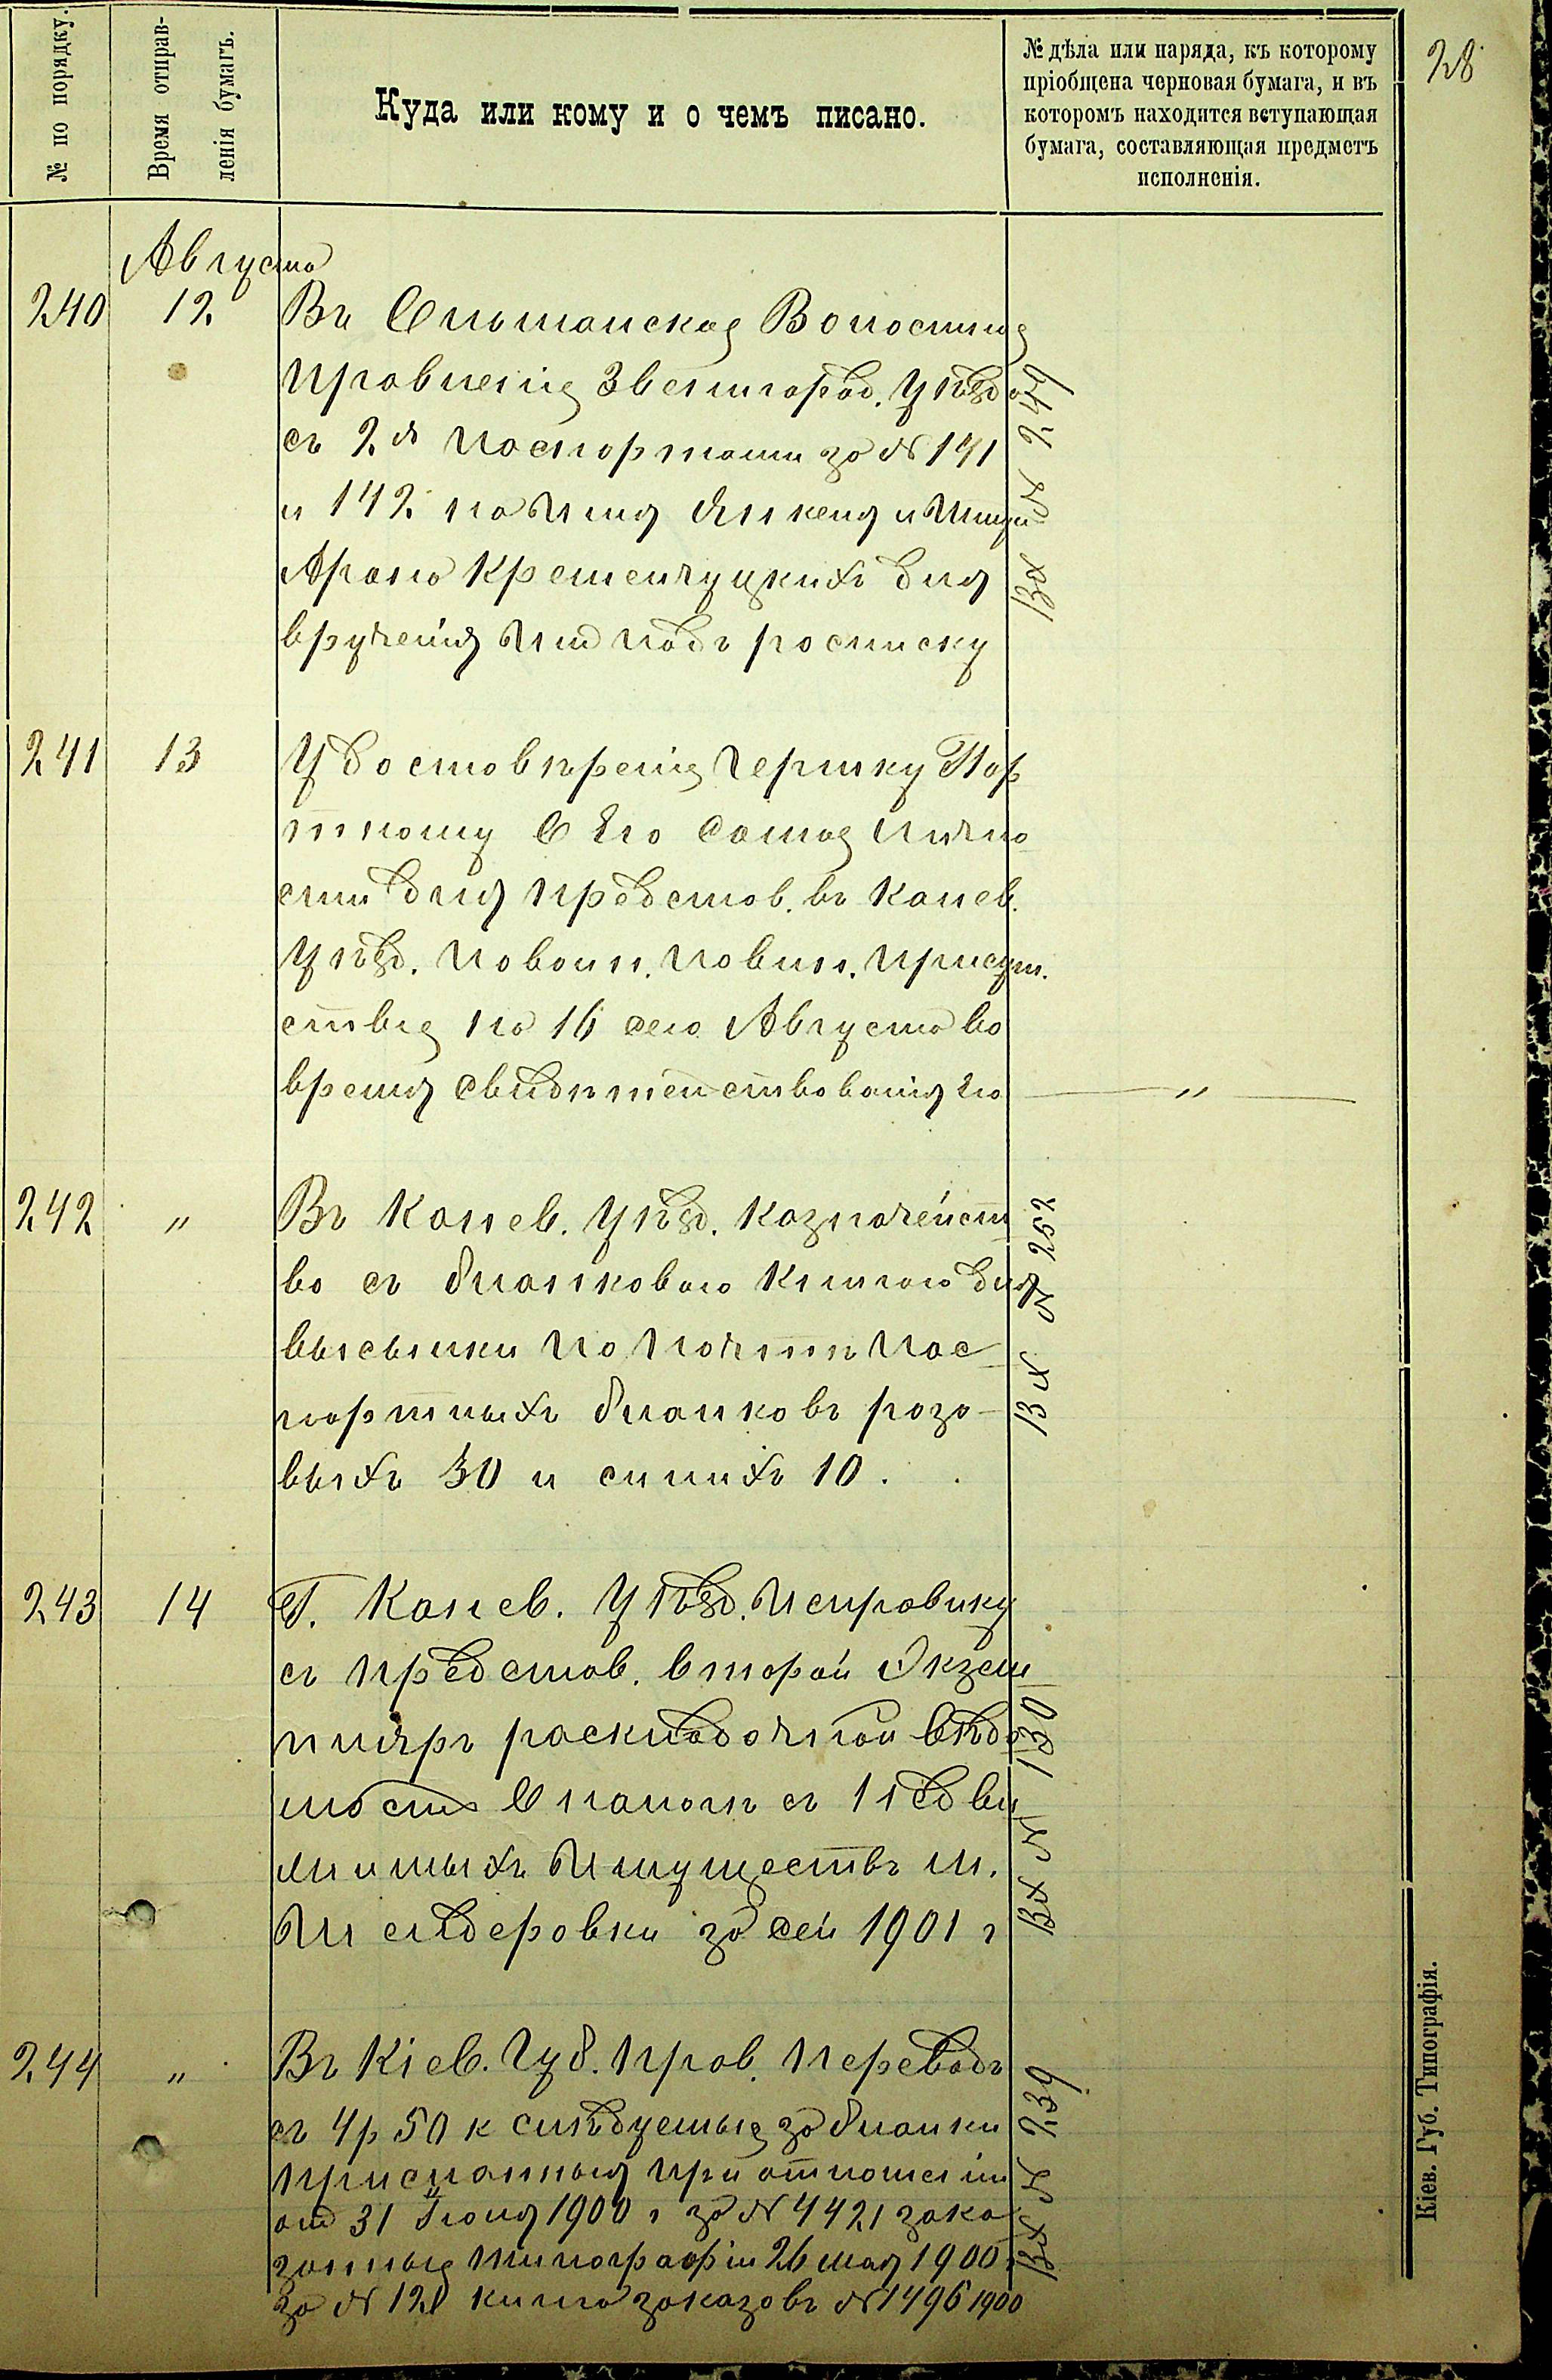 28
№ по порядку.
Время отправ-
ленія бумагъ.
Куда или кому и о чемъ писано.
№ дѣла или наряда, къ которому
пріобщена черновая бумага, и въ
которомъ находится вступающая
бумага, составляющая предметъ
исполненія.
Августа
240 12 Въ Ольшанское Волостное
Правленіе Звенигород. Уѣзда
съ 2мя паспортами за № 141
и 142 на имя Янкеля и
Арана Кременчуцкихъ для
врученія им подъ росписку
Вх № 249
241 13 Удостовѣреніе Гершку Пор
тному О Его самое лично
сти для представ. въ Канев.
Уѣзд. по воин. повин. присут.
ствіе на 16 сего Августа во
время свидѣтельствованія го
— " —
242 " Въ Канев. Уѣзд. Казначейст
во съ бланковою книгою для
высылки по почтѣ пас
портныхъ бланковъ розо-
выхъ 30 и синихъ 10.
Вх № 252
243 14 Г. Канев. Уѣзд. Исправнику
съ представ. второй Экзем
пляръ раскладочной вѣдо
мости О налогѣ съ недви
жимыхъ Имуществъ м.
за сей 1901 г
Вх № 130
244 " Въ Кіев. Губ. Прав. Переводъ
съ 4р 50 к слѣдуемые за бланки
присланныя при отношеніи
от 31 Іюля 1900 г за № 4421 зака
занные типографіи 26 мая 1900 г
за № 128 книга заказовъ № 1496 1900
Вх № 239
Кіев. Губ. Типографія.